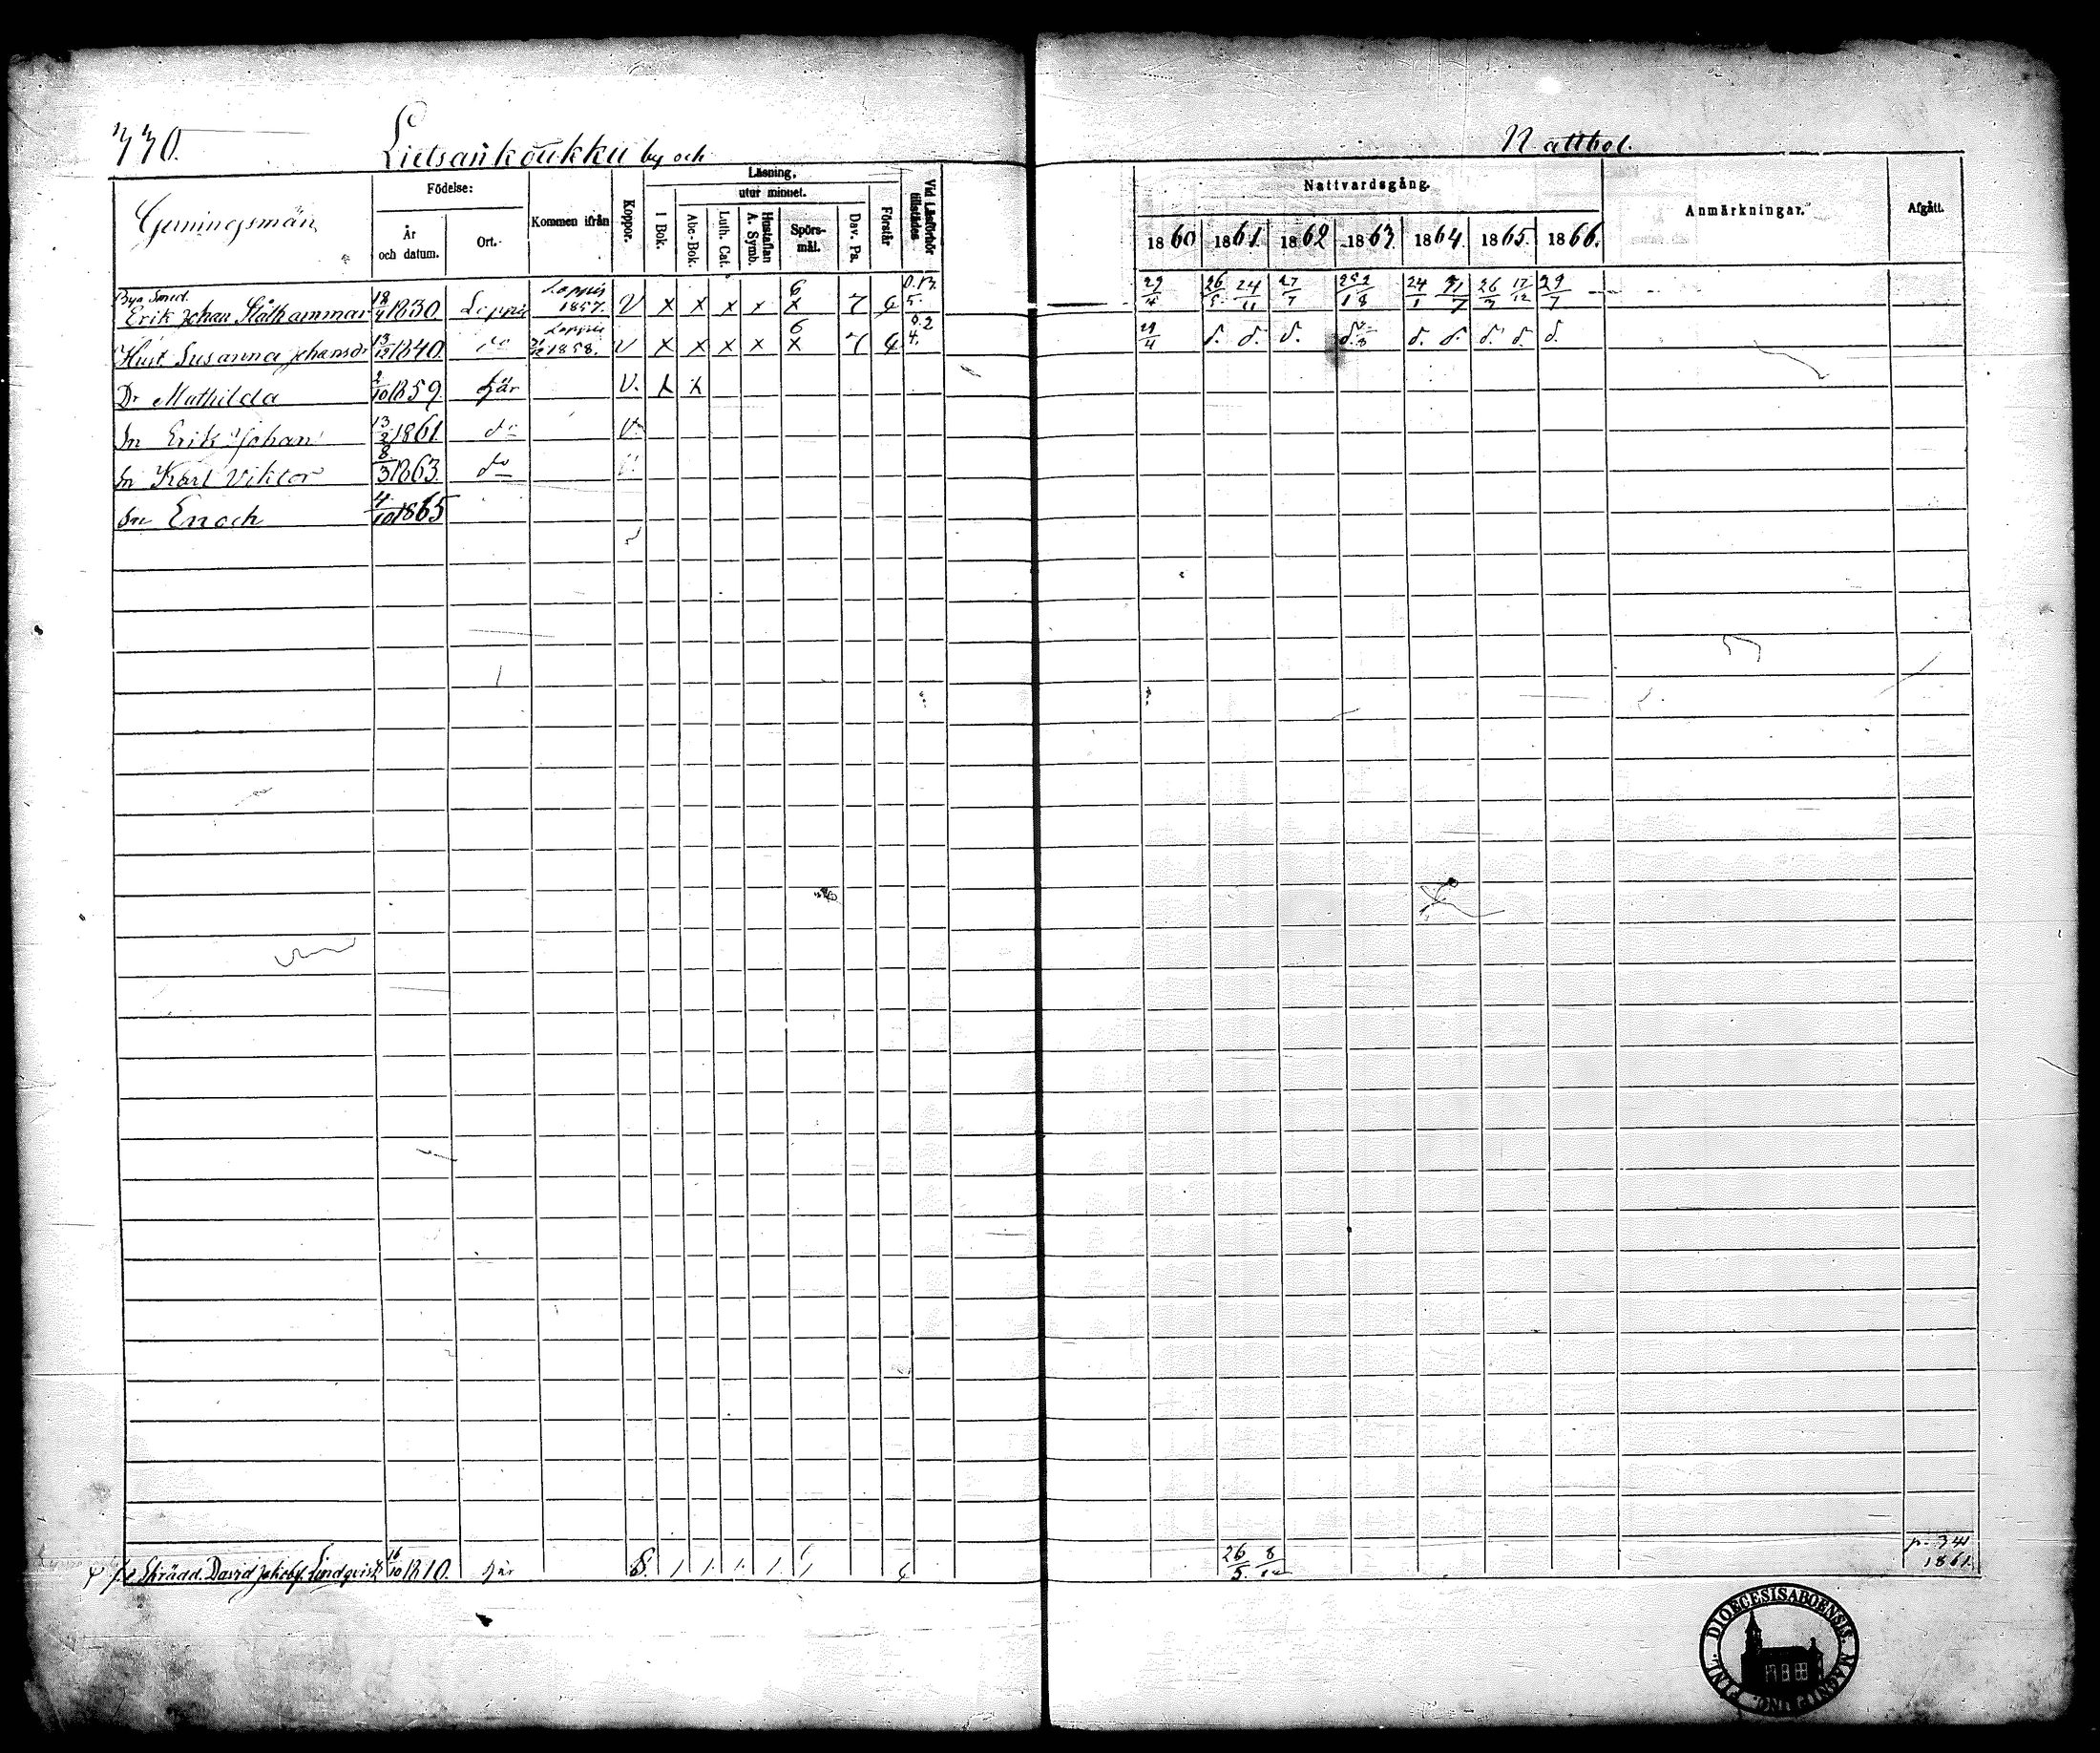 330.
Lietsankoukku by och
Nattbol.
Gerningsmän
Födelse:
År och datum.
Ort.
Kommen ifrån
Koppor.
Läsning,
I Bok.
utur minnet.
Abc-Bok.
Luth. Cat.
Hustaflan A. Symb.
Spörsmål.
Dav. Ps.
Förstår
Vid Läsförhör tillstädes
Nattvardsgång.
1860 1861. 1862 1863. 1864. 1865. 1866.
Anmärkningar.
Afgått.
Bys Smed.
Erik Johan Slåthammar 18/4 1830. Loppis Loppis 1857. V x x x x 6 x 7 29/4 26/5 24/11 27/7 24/1 31/7 17/12 29/7
Hust. Susanna Johansdr 13/12 1840. do Loppis 1858. V x x x x 6 x 7 29/4 d. d. d. d. d. d. d. d.
Dr Mathilda 2/10 1859. här V. x x
Sn Erik Johan 13/2 1861. do V.
Sn Karl Viktor 8/3 1863. do
Sn Enoch 4/10 1865
Skrädd. David Jakobsf. Lindqvist 16/10 1810. här 26/5. 8/12 p. 341 1861.
DIOECESIS ABOENSIS. MAGNI DUC. FINL.